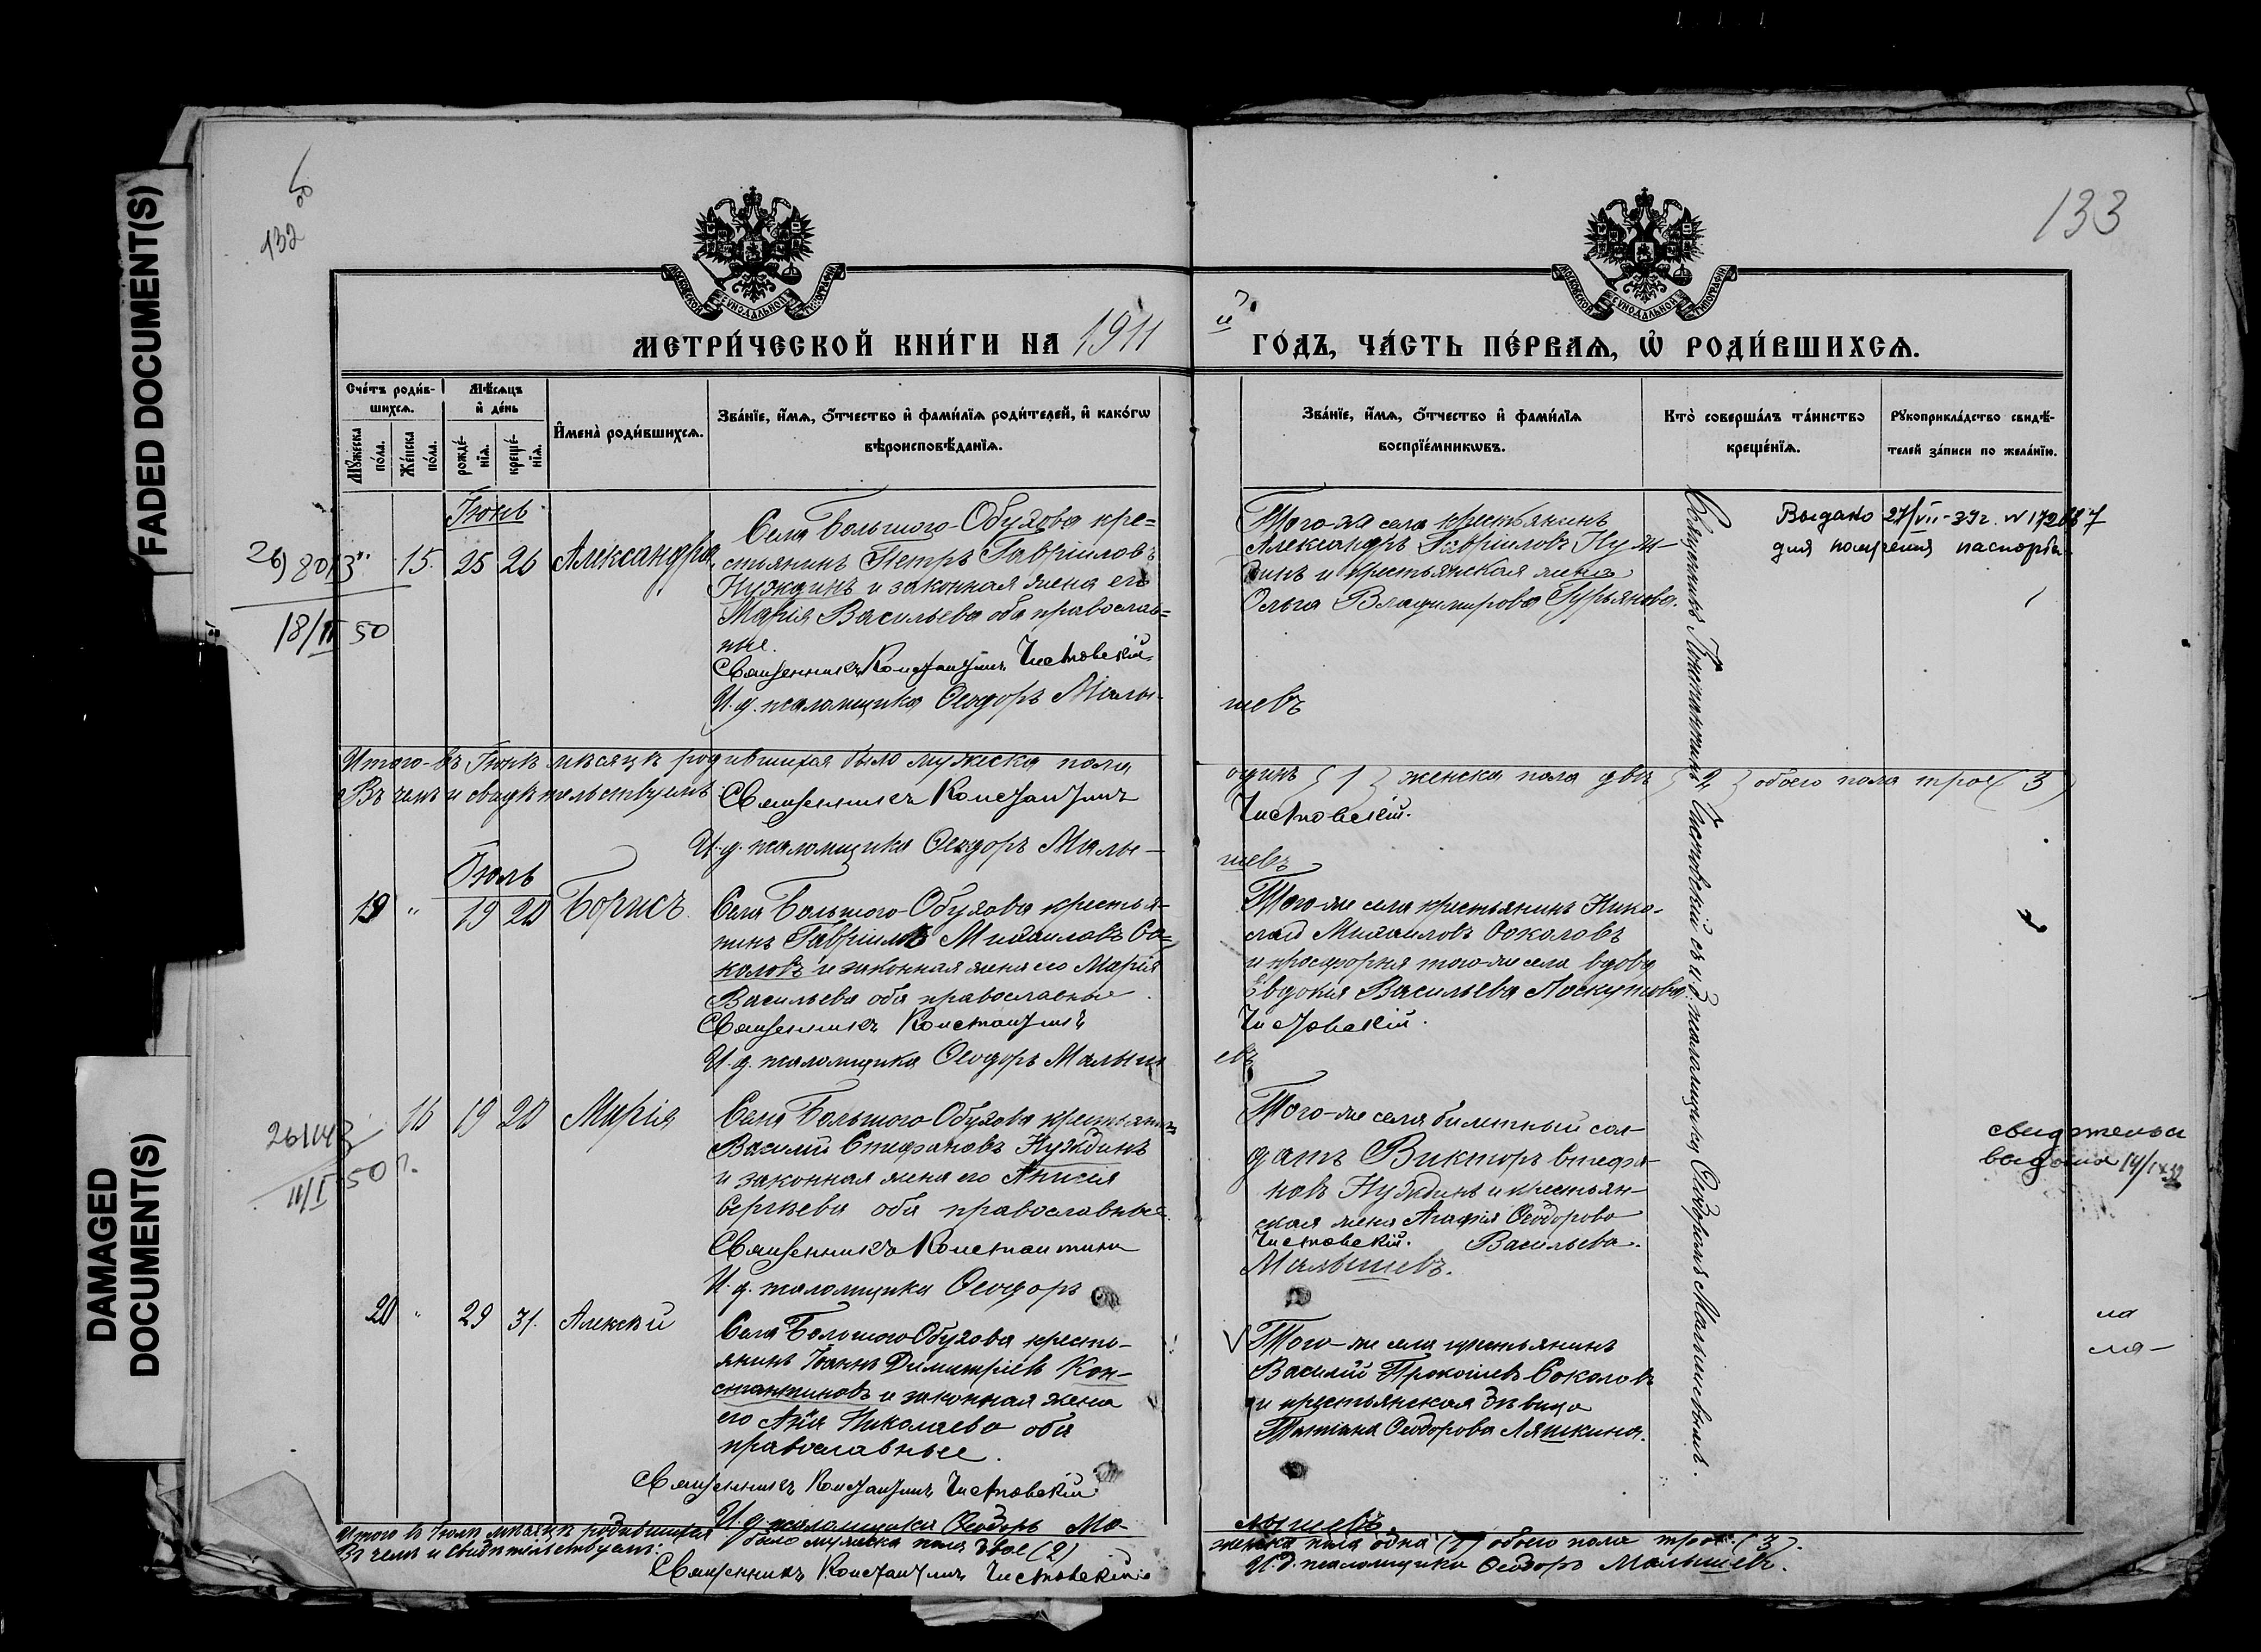 FADED DOCUMENT(S)
DAMAGED
DOCUMENT(S)
132
133
МОСКОВСКОЙ СѴНОДАЛЬНОЙ ТИПОГРАФІИ
МОСКОВСКОЙ СѴНОДАЛЬНОЙ ТИПОГРАФІИ
МЕТРИ́ЧЕСКОЙ КНИ́ГИ НА 1911 й ГО́ДЪ, ЧА́СТЬ ПЕ́РВАѦ, Ѡ҆ РОДИ́ВШИХСѦ.
Сче́тъ роди́в-
шихсѧ.
Мꙋ́жеска
по́ла.
Же́нска
по́ла.
Мѣ́сѧцъ
и҆ де́нь
рожде́-
нїѧ.
креще́-
нїѧ.
И҆мена̀ роди́вшихсѧ.
Зва́нїе, и҆́мѧ, ѻ҆́тчество и҆ фами́лїѧ роди́телей, и҆ како́гѡ
вѣроисповѣ́данїѧ.
Зва́нїе, и҆́мѧ, ѻ҆́тчество и҆ фами́лїѧ
воспрїе́мникѡвъ.
Кто̀ соверша́лъ та́инство
креще́нїѧ.
Рꙋкоприкла́дство свидѣ́-
телей за́писи по жела́нїю.
Іюнь
18/II 50
15. 25 26 Александра
Села Большого-Обухова кре=
стьянинъ Петръ Гавріиловъ
Нуждинъ и законная жена его
Марія Васильева оба православ=
ные.
Священникъ Константинъ Чистовскій
И. д. псаломщика Ѳеодоръ Малы-
шевъ
Того-же села крестьянинъ
Александръ Гавріиловъ Нуж-
динъ и крестьянская жена
Ольга Владимирова Гурьянова.
Выдано 27/VII-39г.
для получения паспорта.
Итого въ Іюнѣ мѣсяцѣ родившихся было мужеска пола
одинъ (1) женска пола двѣ (2) обоего пола трое (3)
Въ чемъ и свидѣтельствуемъ: Священникъ Константинъ
Чистовскій.
И. д. псаломщика Ѳеодоръ Малы-
шевъ
Іюль
19 " 19 20 Борисъ
Села Большого-Обухова крестья-
нинъ Гавріилъ Михаиловъ Со=
коловъ и законная жена его Марія
Васильева оба православные
Священникъ Константинъ
И. д. псаломщика Ѳеодоръ Малыш
евъ
Того-же села крестьянинъ Нико-
лай Михаиловъ Соколовъ
и просфорня того-же села вдова
Евдокія Васильева Лоскутова
Чистовскій.
11/I 50 г.
16 19 20 Марія
Села Большого-Обухова крестьянинъ
Василій Стефановъ Нуждинъ
и законная жена его Анисія
Сергѣева оба православные.
Священникъ Константинъ
И. д. псаломщика Ѳеодоръ
Того-же села билетный сол-
датъ Викторъ Стефа-
новъ Нуждинъ и крестьян-
ская жена Агафія Ѳеодорова
Чистовскій. Васильева.
Малышевъ.
20 " 29 31. Алексѣй
Села Большого Обухова кресть-
янинъ Іоаннъ Димитріевъ Кон-
стантиновъ и законная жена
его Анна Николаева оба
православные.
Священникъ Константинъ Чистовскій
И. д. псаломщика Ѳеодоръ Ма-
лышевъ.
Того-же села крестьянинъ
Василій Прокопіевъ Соколовъ
и крестьянская дѣвица
Татіана Ѳеодорова Ляшкина.
Священникъ Константинъ Чистовскій съ и. д. псаломщика Ѳеодоромъ Малышевымъ.
Итого въ Іюлѣ мѣсяцѣ родившихся было мужеска пола двое (2)
женска пола одна (1) обоего пола трое (3).
Въ чемъ и свидѣтельствуемъ:
Священникъ Константинъ Чистовскій
И. д. псаломщика Ѳеодоръ Малышевъ.